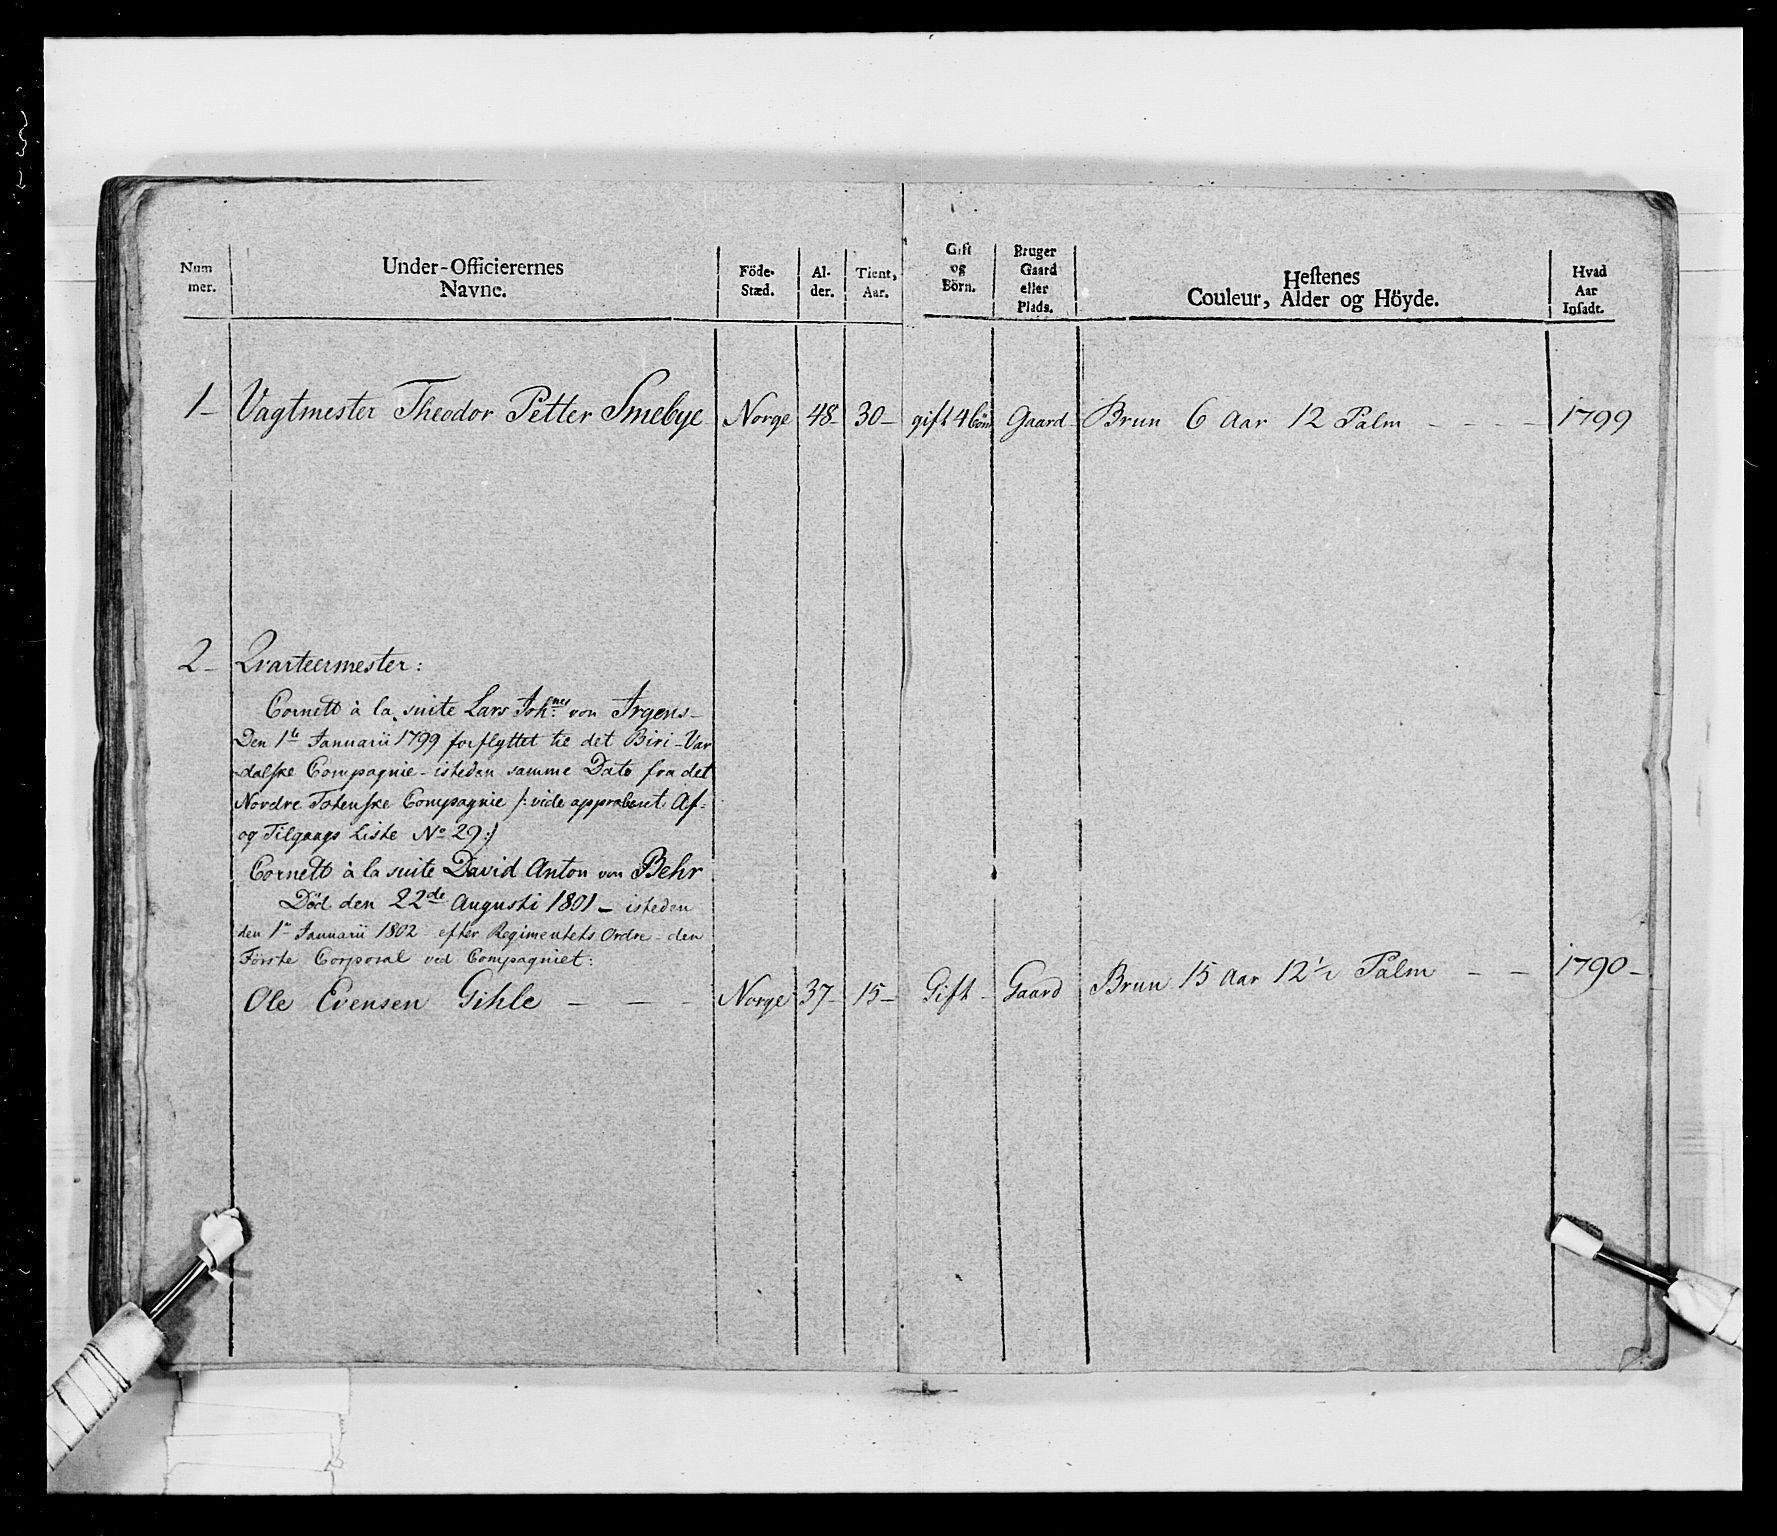 Num mer.
Under-Officierernes Navne.
Föde-Stæd.
Al-der.
Tient, Aar.
Gift og Börn.
Bruger Gaard eller Plads.
Heftenes Couleur, Alder og Höyde.
Hvad Aar Insadt.
1 Vagtmester Theodor Petter Smebye Norge 48 30 gift 4 börn Gaard Brun 6 Aar 12 Palm 1799
2 Qvarteermester:
Cornett à la suite Lars Joh:nes von Irgens
Den 1te Januarii 1799 forflyttet til det Biri-Var
dalske Compagnie - isteden samme Dato fra det
Nordre Totenske Compagnie /: vide approberet Af-
og Tilgangs Liste No 29 :/
Cornett à la suite David Anton von Behr
Död den 22de Augusti 1801 - isteden
den 1te Januarii 1802 efter Regimentets Ordre - den
Förste Corporal ved Compagniet:
Ole Evensen Gihle - - - Norge 37 15 Gift Gaard Brun 15 Aar 12 1/2 Palm - - 1790